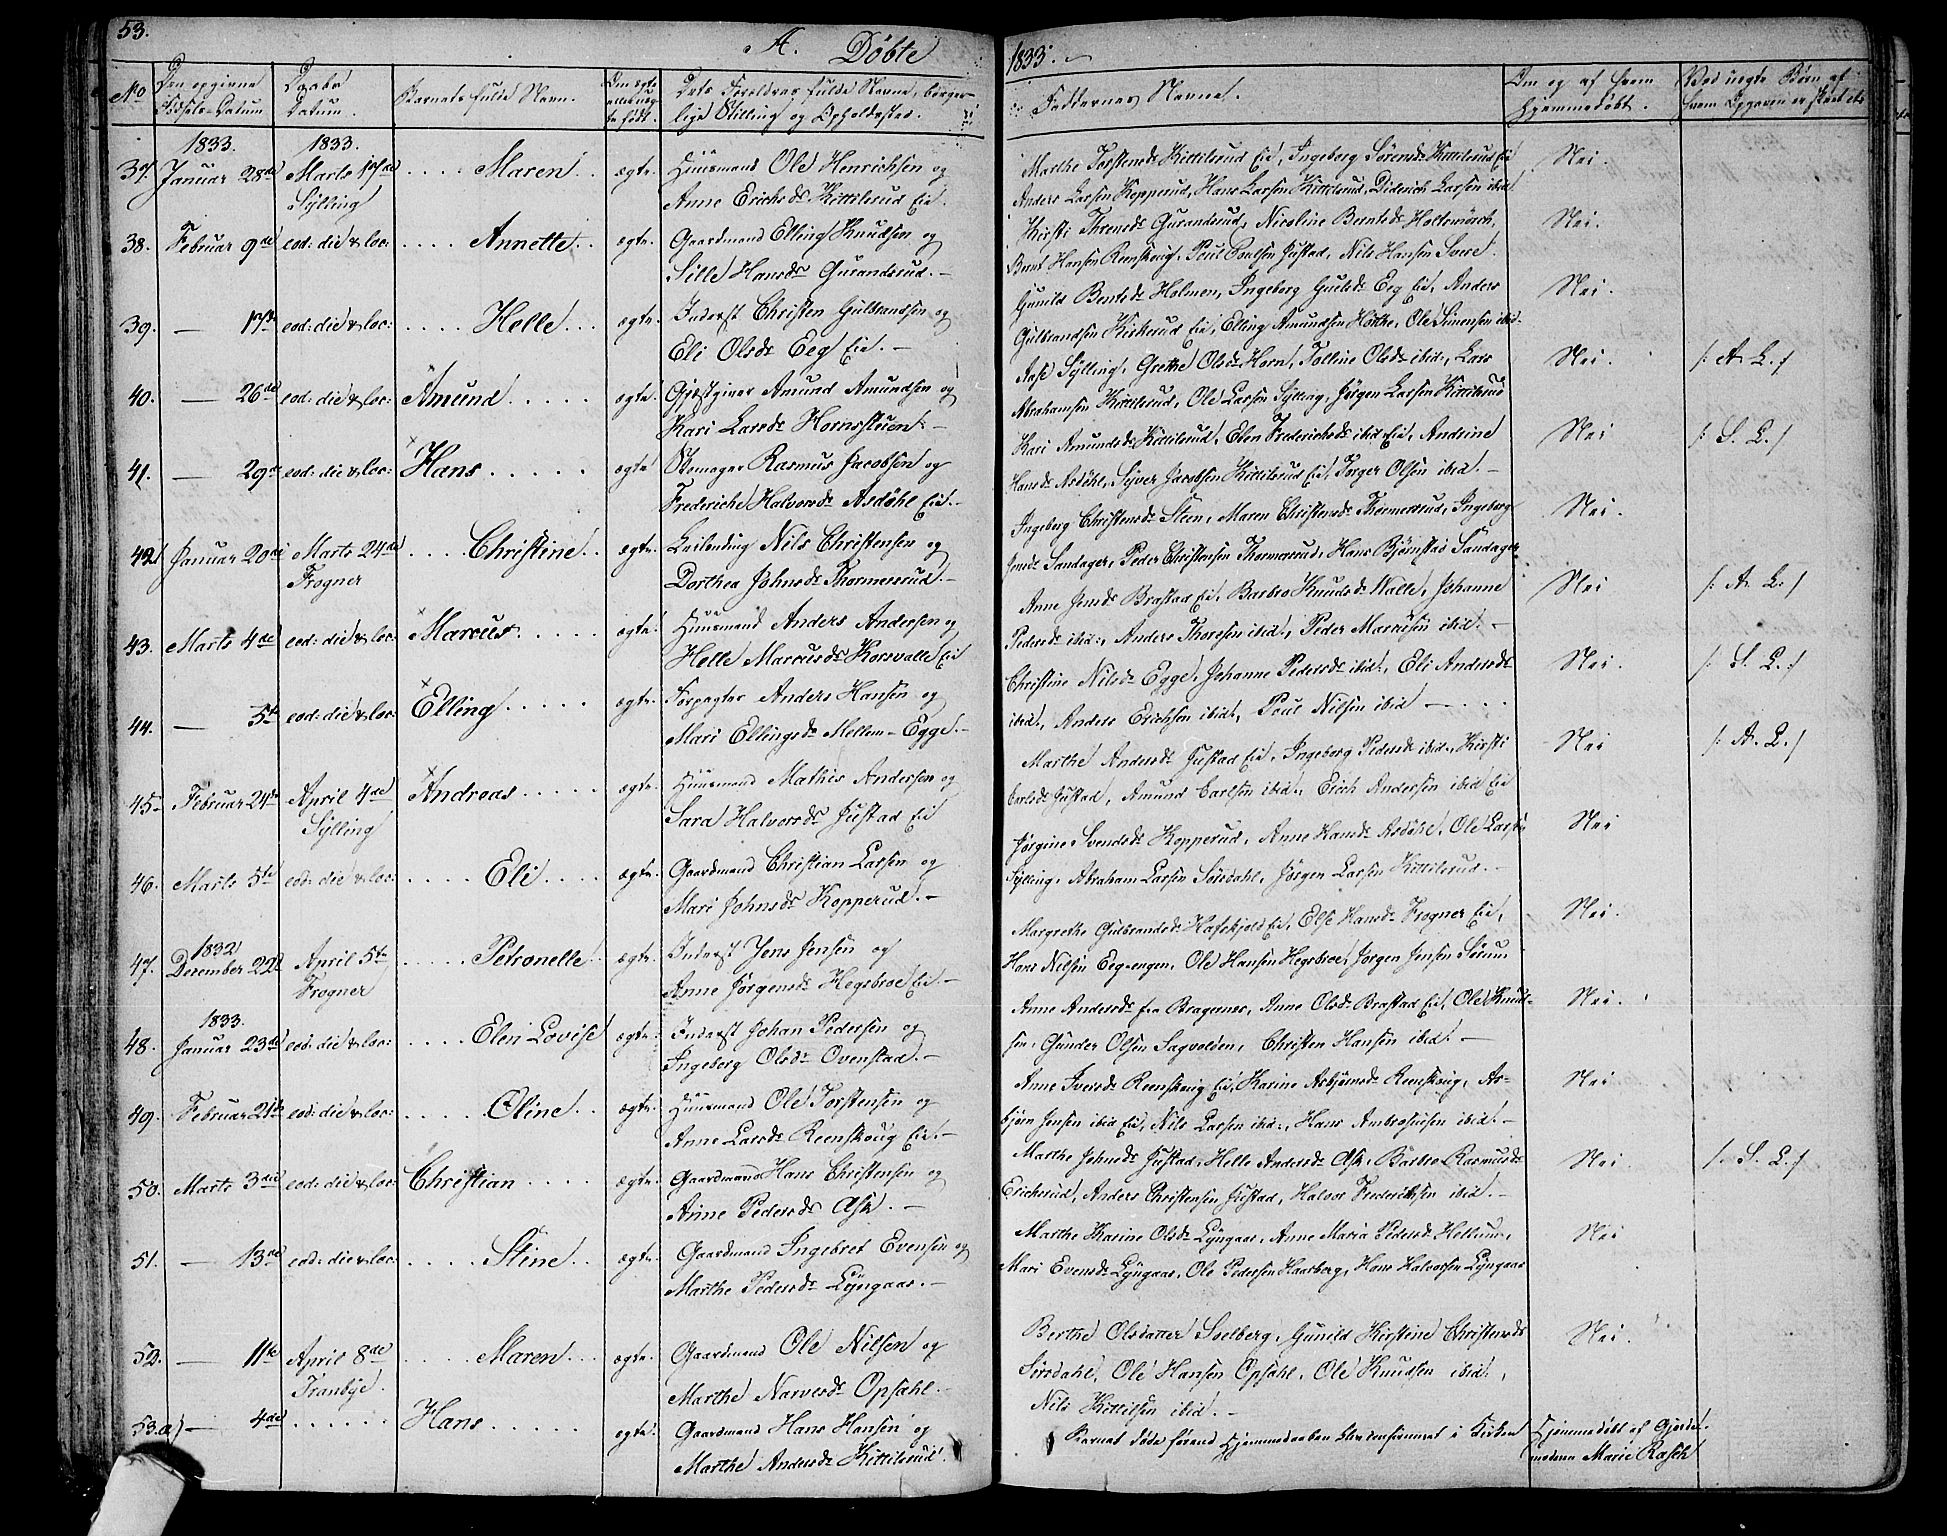 53.
A. Døbte
1833.
No
Den opgivne Fødsels-Datum
Daabs Datum.
Barnets fulde Navn.
Om ægte eller uægte født.
Dets Forældres fulde Navne, borgerlige Stilling og Opholdssted.
Faddernes Navne.
Om og af hvem hjemmedøbt.
1833.
1833.
37. Januar 28de Marts 17de .... Maren .. ægte. Huusmand Ole Henrichsen og
Sylling
Anne Erichsdr Kittilsrud Eie.
Marthe Torstensdr Kittilsrud Eie, Ingeborg Sørensdr Kittilsrud Eie
Anders Larsen Kopperud, Hans Larsen Kittilsrud, Diderich Larsen ibid.
Nei.
38. Februar 9de eod: die & loc: .... Annette .. ægte. Gaardmand Elling Knudsen og
Sille Hansdr Gurandsrud. —
Kirsti Gurandsrud, Nicoline Berntsdr Holtsmarch,
Bernt Hansen Reenskoug, Poul Poulsen Justad, Nils Hansen
Nei.
39. — 17de eod: die & loc: .... Helle ... ægte. Inderst Christen Gulbrandsen og
Eli Olsdr Eeg Eie. —
Gunild Bentsdr Holmen, Ingeborg Eeg Eie, Anders
Gulbrandsen Kirkerud Eie, Elling Amundsen Hotte, Ole Simensen ibid.
Nei.
40. — 26de eod: die & loc: Amund ..... ægte. Gjestgiver Amund Amundsen og
Kari Larsdr Hornsletten. —
Aase Sylling, Grethe Olsdr Horn, Olsdr ibid:, Lars
Abrahamsen Kittilsrud, Ole Larsen Sylling, Jørgen Larsen Kittilsrud
Nei.
/: A. L. /
41. — 29de eod: die & loc: Hans ..... ægte Skomager Rasmus Jacobsen og
Frederiche Halvorsdr Asdøhl Eie. —
Kari Amundsdr Kittilsrud, Elen Frederichsdr ibid Eie, Andrine
Hansdr Asdøhl, Syver Jacobsen Kittilsrud Eie, Torger Olsen ibid. —
Nei
/: S. L. /
42. Januar 20de Marts 24de .... Christine .. ægte. Leilending Nils Christensen og
Frogner
Dorthea Johnsdr Thormersrud. —
Ingeborg Christensdr Steen, Maren Christensdr Thormersrud, Ingeborg
Jensdr Sandager, Peder Christensen Thormersrud, Hans Bjørnstad Sandager
Nei.
43. Marts 4de eod: die & loc: Marcus .... ægte. Huusmand Anders Andersen og
Helle Marcusdr Korsvolle Eie
Anne Jensdr Brastad Eie, Barbro Knudsdr Valle, Johanne
Pedersdr ibid:, Anders Thoresen ibid:, Peder Marcusen ibid. —
Nei
/: A. L. /
44. — 5te eod: die & loc: Elling ..... ægte. Forpagter Anders Hansen og
Mari Ellingsdr Mellem-Egge. —
Christine Nilsdr Egge, Johanne Pedersdr ibid:, Eli Andersdr
ibid:, Anders Erichsen ibid:, Poul Nilsen ibid — ...
Nei.
/: S. L. /
45. Februar 24de April 4de Andreas ..... ægte. Huusmand Mathis Andersen og
Sylling
Sara Halvorsdr Justad Eie
Marthe Andersdr Justad Eie, Ingeborg Pedersdr ibid:, Kirsti
Carlsdr Justad, Amund Carlsen ibid:, Erich Andersen ibid Eie
Nei
/: A. L. /
46. Marts 5te eod: die & loc: .... Eli .... ægte. Gaardmand Christian Larsen og
Mari Johnsdr Kopperud. —
Jørgine Svendsdr Kopperud, Anne Hansdr Asdøhl, Ole Larsen
Sylling, Abraham Larsen Sørsdahl, Jørgen Larsen Kittilsrud. —
Nei
1832
47. December 22de April 5te .... Petronelle. ægte. Inderst Jens Jensen og
Frogner
Anne Jørgensdr Hegsbroe Eie. —
Margrethe Gulbrandsdr Eie, Else Hansdr Frogner Eie,
Hans Nilsen Eeg-engen, Ole Hansen Hegsbroe, Jørgen Jensen Sørum
Nei.
1833.
48. Januar 23de eod: die & loc: .... Elen Lovise ægte. Inderst Johan Pedersen og
Ingeborg Olsdr Ovenstad. —
Anne Andersdr fra Bragernes, Anne Olsdr Brastad Eie, Ole Knud-
sen, Gunder Olsen Sagvolden, Christen Hansen ibid. —
Nei.
49. Februar 21de eod: die & loc: .... Oline .. ægte. Huusmand Ole Torstensen og
Anne Larsdr Reenskoug Eie. —
Anne Iversdr Reenskoug Eie, Karine Asbjørnsdr Reenskoug, As-
bjørn Jensen ibid Eie, Nils Larsen ibid:, Hans Ambrosiusen ibid. —
Nei
50. Marts 3die eod: die & loc: Christian .... ægte. Gaardmand Hans Christensen og
Anne Pedersdr Ask. —
Marthe Johnsdr Justad, Helle Andersdr Ask, Barbro Rasmusdr
Erichsrud, Anders Christensen Justad, Halvor Frederichsen ibid. —
Nei.
/: S. L. /
51. — 13de eod: die & loc: .... Stine .. ægte. Gaardmand Ingebret Evensen og
Marthe Pedersdr Lyngaas. —
Marthe Karine Olsdr Lyngaas, Anne Maria Pedersdr Hellum,
Mari Evensdr Lyngaas, Ole Pedersen Haarberg, Hans Halvorsen Lyngaas
Nei
52. — 11te April 8de .... Maren ... ægte. Gaardmand Ole Nilsen og
Tranbye.
Marthe Narvesdr Opsahl.
Berthe Olsdatter Soelberg, Gunild Kirstine Christensdr
Sørsdahl, Ole Hansen Opsahl, Ole Knudsen ibid:,
Nils Kittilsen ibid. —
Nei.
53.a) — 4de ...... Hans ..... ægte. Gaardmand Hans Hansen og
Marthe Andersdr Kittilsrud.
Barnet døde førend Hjemmedaaben blev confirmeret i Kirken
Hjemmedøbt af Gjorde-
moderen Marie Rasch